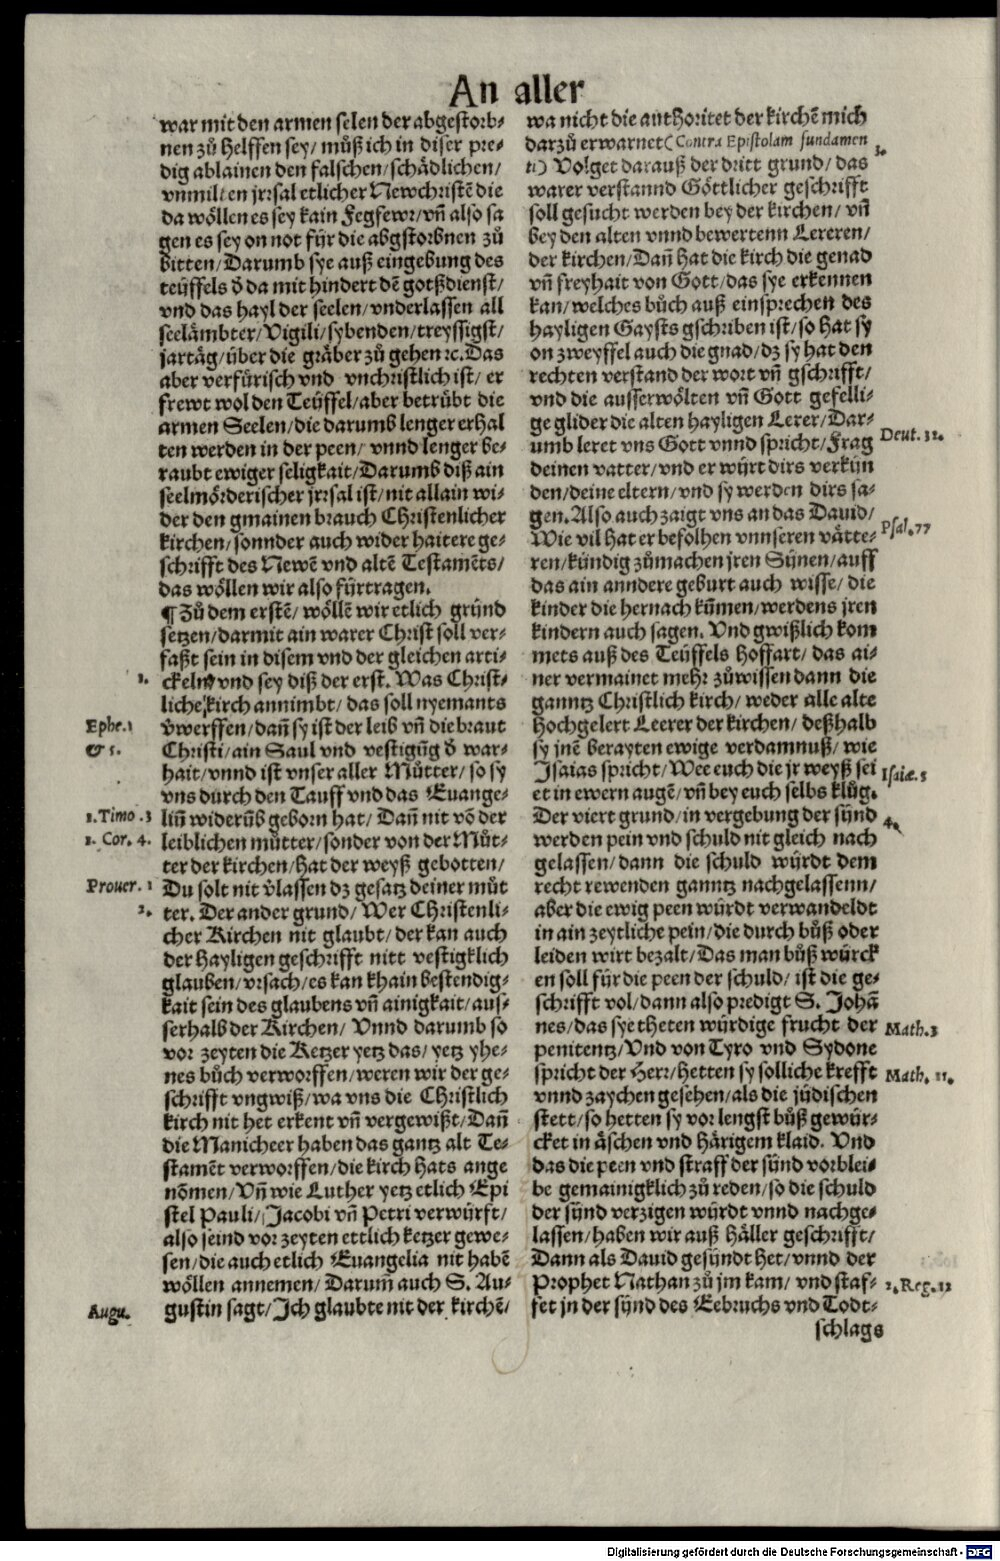 An aller
war mit den armen selen der abgestorb⸗
nen zů helffen sey/ můß ich in diser pre⸗
dig ablainen den falschen/schädlichen/
vnmilten jrrsal etlicher Newchristē die
da wöllen es sey kain Fegfewr/vñ also sa
gen es sey on not für die abgstorbnen zů
bitten/Darumb sye auß eingebung des
teüffels ð da mit hindert dē gotßdienst/
vnd das hayl der seelen/vnderlassen all
seelämbter/Vigili/sybenden/treyssigst/
jartäg/über die gräber zů gehen ꝛc. Das
aber verfürisch vnd vnchristlich ist/ er
frewt wol den Teüffel/aber betrübt die
armen Seelen/die darumb lenger erhal
ten werden in der peen/ vnnd lenger be⸗
raubt ewiger seligkait/Darumb diß ain
seelmörderischer jrrsal ist/nit allain wi⸗
der den gmainen brauch Christenlicher
kirchen/sonnder auch wider haitere ge⸗
schrifft des Newē vnd altē Testamēts/
das wöllen wir also fürtragen.
¶ Zů dem erstē/ wöllē wir etlich gründ
setzen/darmit ain warer Christ soll ver⸗
faßt sein in disem vnd der gleichen arti⸗
1. ckeln/ vnd sey diß der erst. Was Christ⸗
liche kirch annimbt/das soll nyemants
Ephe.1 v̄werffen/dañ sy ist der leib vñ die braut
& 5. Christi/ain Saul vnd vestigūg ð war⸗
hait/vnnd ist vnser aller Můtter/so sy
vns durch den Tauff vnd das Euange⸗
1.Timo.3 liū widerūb geborn hat/ Dañ nit vō der
1. Cor. 4. leiblichen můtter/sonder von der Můt⸗
ter der kirchen/hat der weyß gebotten/
Prouer. 1 Du solt nit v̄lassen dz gesatz deiner můt
2. ter. Der ander grund/ Wer Christenli⸗
cher Kirchen nit glaubt/der kan auch
der Hayligen geschrifft nitt vestigklich
glauben/vrsach/es kan khain bestendig⸗
kait sein des glaubens vñ ainigkait/aus⸗
serhalb der Kirchen/ Vnnd darumb so
vor zeyten die Ketzer yetz das/yetz yhe⸗
nes bůch verworffen/weren wir der ge⸗
schrifft vngwiß/wa vns die Christlich
kirch nit het erkent vñ vergewißt/Dañ
die Manicheer haben das gantz alt Te⸗
stamēt verworffen/die kirch hats ange
nōmen/Vñ wie Luther yetz etlich Epi
stel Pauli/Jacobi vñ Petri verwürft/
also seind vor zeyten ettlich ketzer gewe⸗
sen/die auch etlich Euangelia nit habē
wöllen annemen/Darum̄ auch S. Au⸗
Augu. gustin sagt/Ich glaubte nit der kirchē/
wa nicht die authoritet der kirchē mich
darzů erwarnet(Contra Epistolam fundamen
3. ti) Volget darauß der dritt grund/das
warer verstannd Göttlicher geschrifft
soll gesucht werden bey der kirchen/vñ
bey den alten vnnd bewertenn Lereren/
der kirchen/Dañ hat die kirch die genad
vñ freyhait von Gott/das sye erkennen
kan/welches bůch auß einsprechen des
hayligen Gaysts gschriben ist/so hat sy
on zweyffel auch die gnad/dz sy hat den
rechten verstand der wort vñ gschrifft/
vnd die ausserwölten vñ Gott gefelli⸗
ge glider die alten hayligen Lerer/Dar⸗
umb leret vns Gott vnnd spricht/Frag Deut. 32.
deinen vatter/vnd er würt dirs verkün
den/deine eltern/vnd sy werden dirs sa⸗
gen. Also auch zaigt vns an das Dauid/
Wie vil hat er befolhen vnnseren vätte⸗ Psal.77
ren/kündig zůmachen jren Sünen/auff
das ain anndere geburt auch wisse/die
kinder die hernach kūmen/werdens jren
kindern auch sagen. Vnd gwißlich kom
mets auß des Teüffels hoffart/das ai⸗
ner vermainet mehr zůwissen dann die
ganntz Christlich kirch/weder alle alte
hochgelert Leerer der kirchen/ deßhalb
sy jnē berayten ewige verdamnuß/ wie
Isaias spricht/Wee euch die jr weyß sei Isaiæ.5
et in ewern augē/vñ bey euch selbs klůg.
Der viert grund/in vergebung der sünd 4.
werden pein vnd schuld nit gleich nach
gelassen/dann die schuld würdt dem
recht rewenden ganntz nachgelassenn/
aber die ewig peen würdt verwandeldt
in ain zeytliche pein/die durch bůß oder
leiden wirt bezalt/Das man bůß würck
en soll für die peen der schuld/ ist die ge⸗
schrifft vol/dann also predigt S. Johā
nes/das sye theten würdige frucht der Math.3
penitentz/Vnd von Tyro vnd Sydone
spricht der Herr/hetten sy solliche krefft Math. 11.
vnnd zaychen gesehen/als die jüdischen
stett/so hetten sy vor lengst bůß gewür⸗
cket in äschen vnd härigem klaid. Vnd
das die peen vnd straff der sünd vorblei⸗
be gemainigklich zů reden/so die schuld
der sünd verzigen würdt vnnd nachge⸗
lassen/haben wir auß häller geschrifft/
Dann als Dauid gesündt het/vnnd der
Prophet Nathan zů jm kam/ vnd staf⸗ 2.Reg.12
fet jn der sünd des Eebruchs vnd Todt⸗
schlags
Digitalisierung gefördert durch die Deutsche Forschungsgemeinschaft - DFG